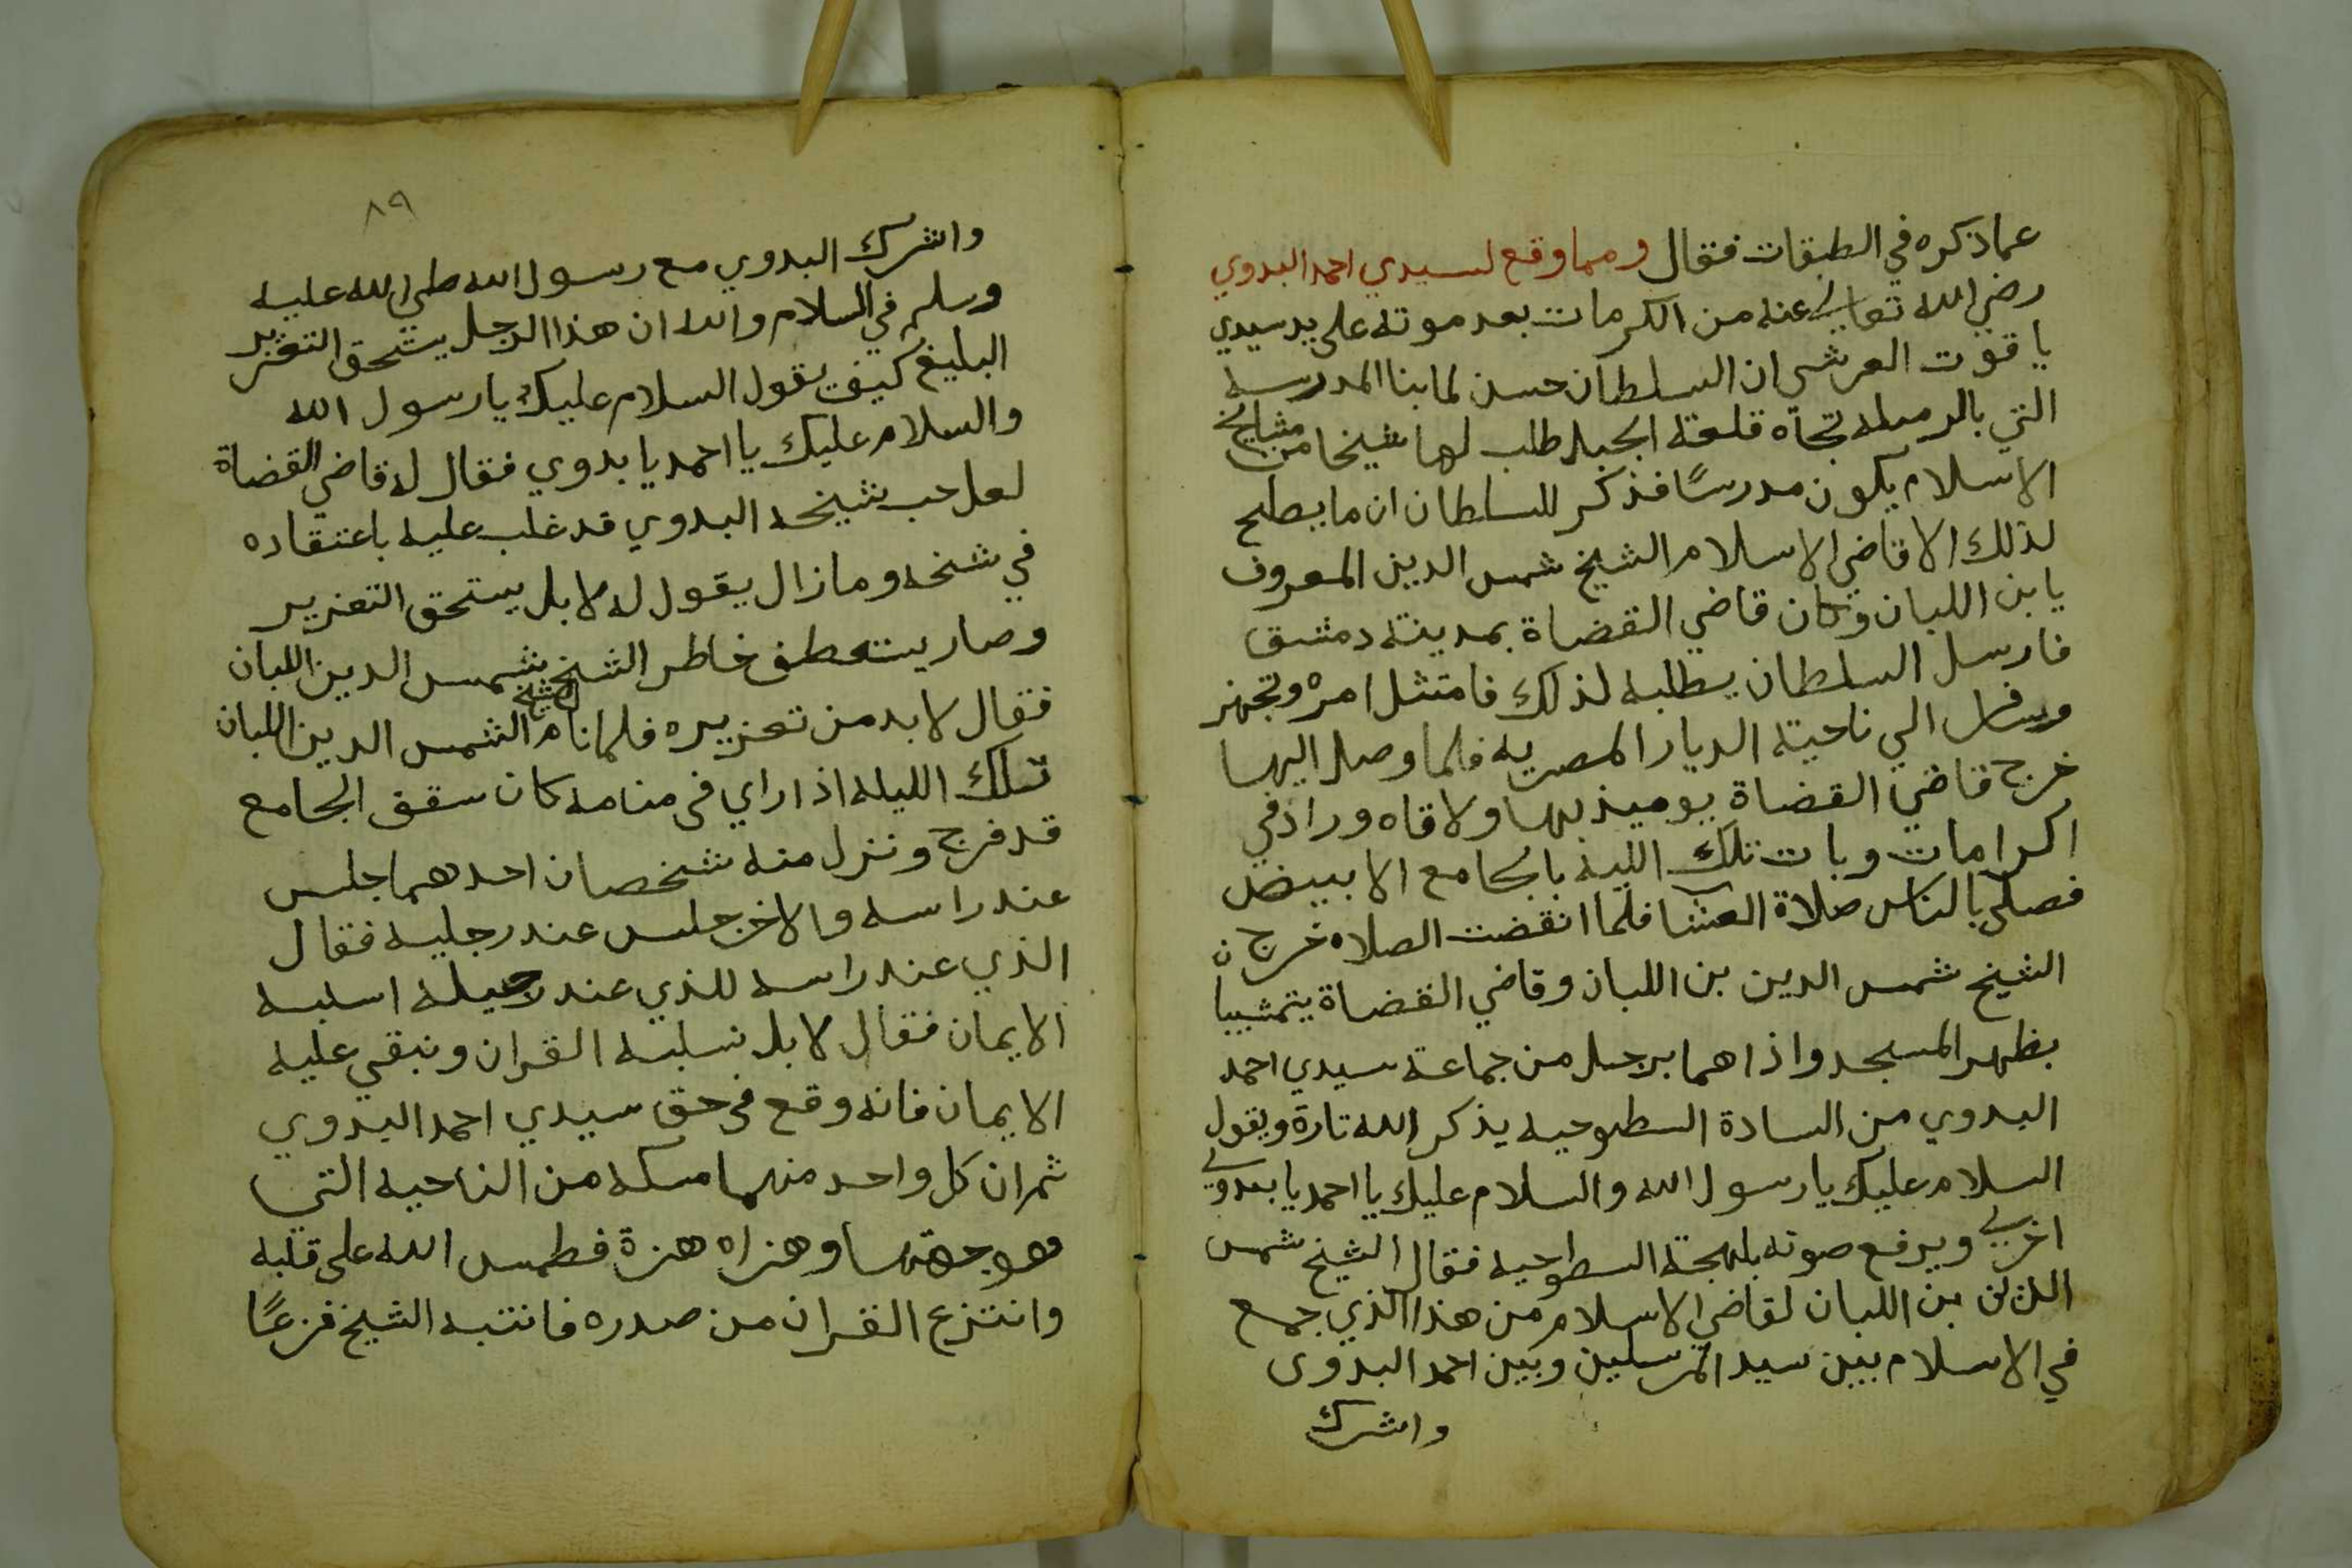 عما ذكره في الطبقات فقال ومما وقع لسيدي احمد البدوي
رضي الله تعالى عنه من الكرمات بعد موته على يد سيدي
ياقوت العرشي ان السلطان حسن لما بنا المدرسه
التي بالرميله تجاة قلعة الجبل طلب لها شيخا من مشايخ
الاسلام يكون مدرسًا فذكر للسلطان ان ما يصلح
لذلك الا قاضي الاسلام الشيخ شمس الدين المعروف
يابن اللبان وكان قاضي القضاة بمدينة دمشق
فارسل السلطان يطلبه لذلك فامتثل امره وتجهز
وسافر الي ناحية الديار المصريه فلما وصل اليها
خرج قاضي القضاة يوميذ بها ولاقاه وراد في
اكرامات وبات تلك الليه بالجامع الابيض
فصلي بالناس صلاة العشا فلما انقضت الصلاه خرج ن
الشيخ شمس الدين بن اللبان وقاضي القضاة يتمشيا
بظهر المسجد واذا هما برجل من جماعة سيدي احمد
البدوي من السادة السطوحيه يذكر الله تارة ويقول
السلام عليك يا رسول الله والسلام عليك يا احمد يا بدوي
اخري ويرفع صوته بلهجة السطوحيه فقال الشيخ شمس
بن اللبان لقاضي الاسلام من هذا الذي جمع
في الاسلام بين سيد المرسلين وبين احمد البدوى
واشرك
٨٩
واشرك البدوي مع رسول الله صلى الله عليه
وسلم في السلام والله ان هذا الرجل يستحق التعزير
البليغ كيف يقول السلام عليك يا رسول الله
والسلام عليك يا احمد يا بدوي فقال له قاضي القضاة
لعل حب شيخه البدوي قد غلب عليه باعتقاده
في شخه وما زال يقول له لا بل يستحق التعزير
وصار يستعطف خاطر الشيخ شمس الدين اللبان
فقال لا بد من تعزيره فلما نام الشيخ الشمس الدين اللبان
تلك الليله اذا راي فى منامه كان سقف الجامع
قد فرج ونزل منه شخصان احدهما جلس
عند راسه والاخر جلس عند رجليه فقال
الذي عند راسه للذي عند رجيله اسلبه
الايمان فقال لا بل نسلبه القران ونبقي عليه
الايمان فانه وقع فى حق سيدي احمد البدوي
ثم ان كل واحد منهما مسكه من الناحيه التي
هو جهتها وهزاه هزة فطمس الله على قلبه
وانتزع القران من صدره فانتبه الشيخ فزعًا